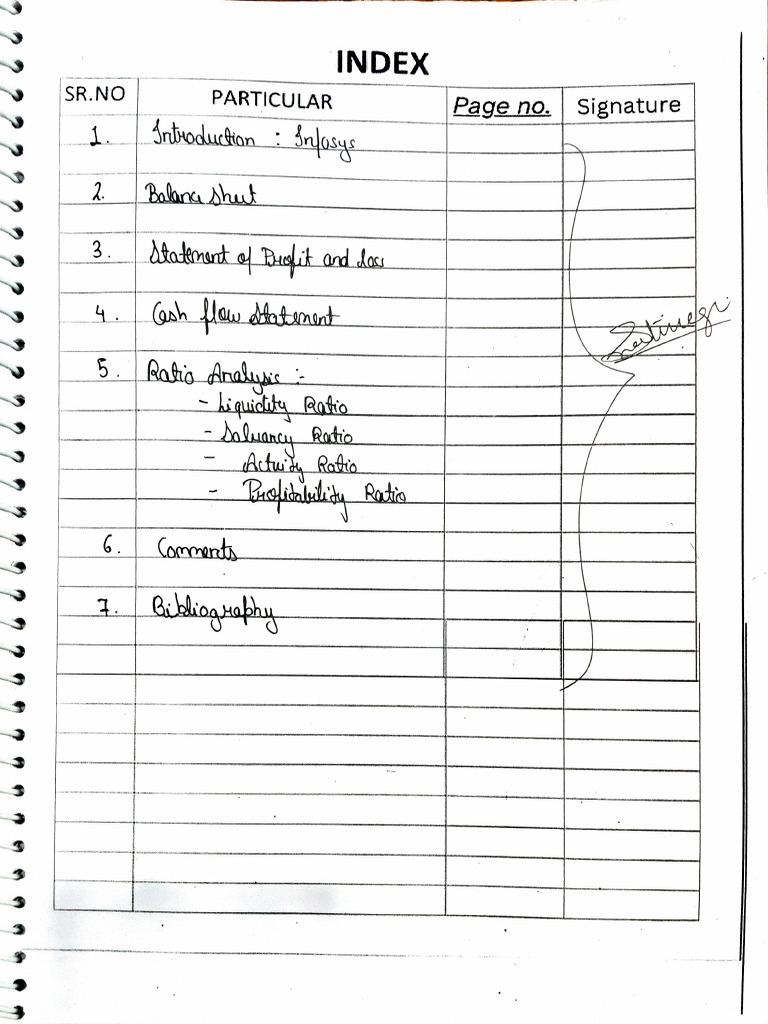 INDEX
SR.NO PARTICULAR Page no. Signature
1. Introduction : Infosys
2. Balance Sheet
3. Statement of Profit and Loss
4. Cash flow Statement
5. Ratio Analysis :-
- Liquidity Ratio
- Solvancy Ratio
- Activity Ratio
- Profitability Ratio
6. Comments
7. Bibliography